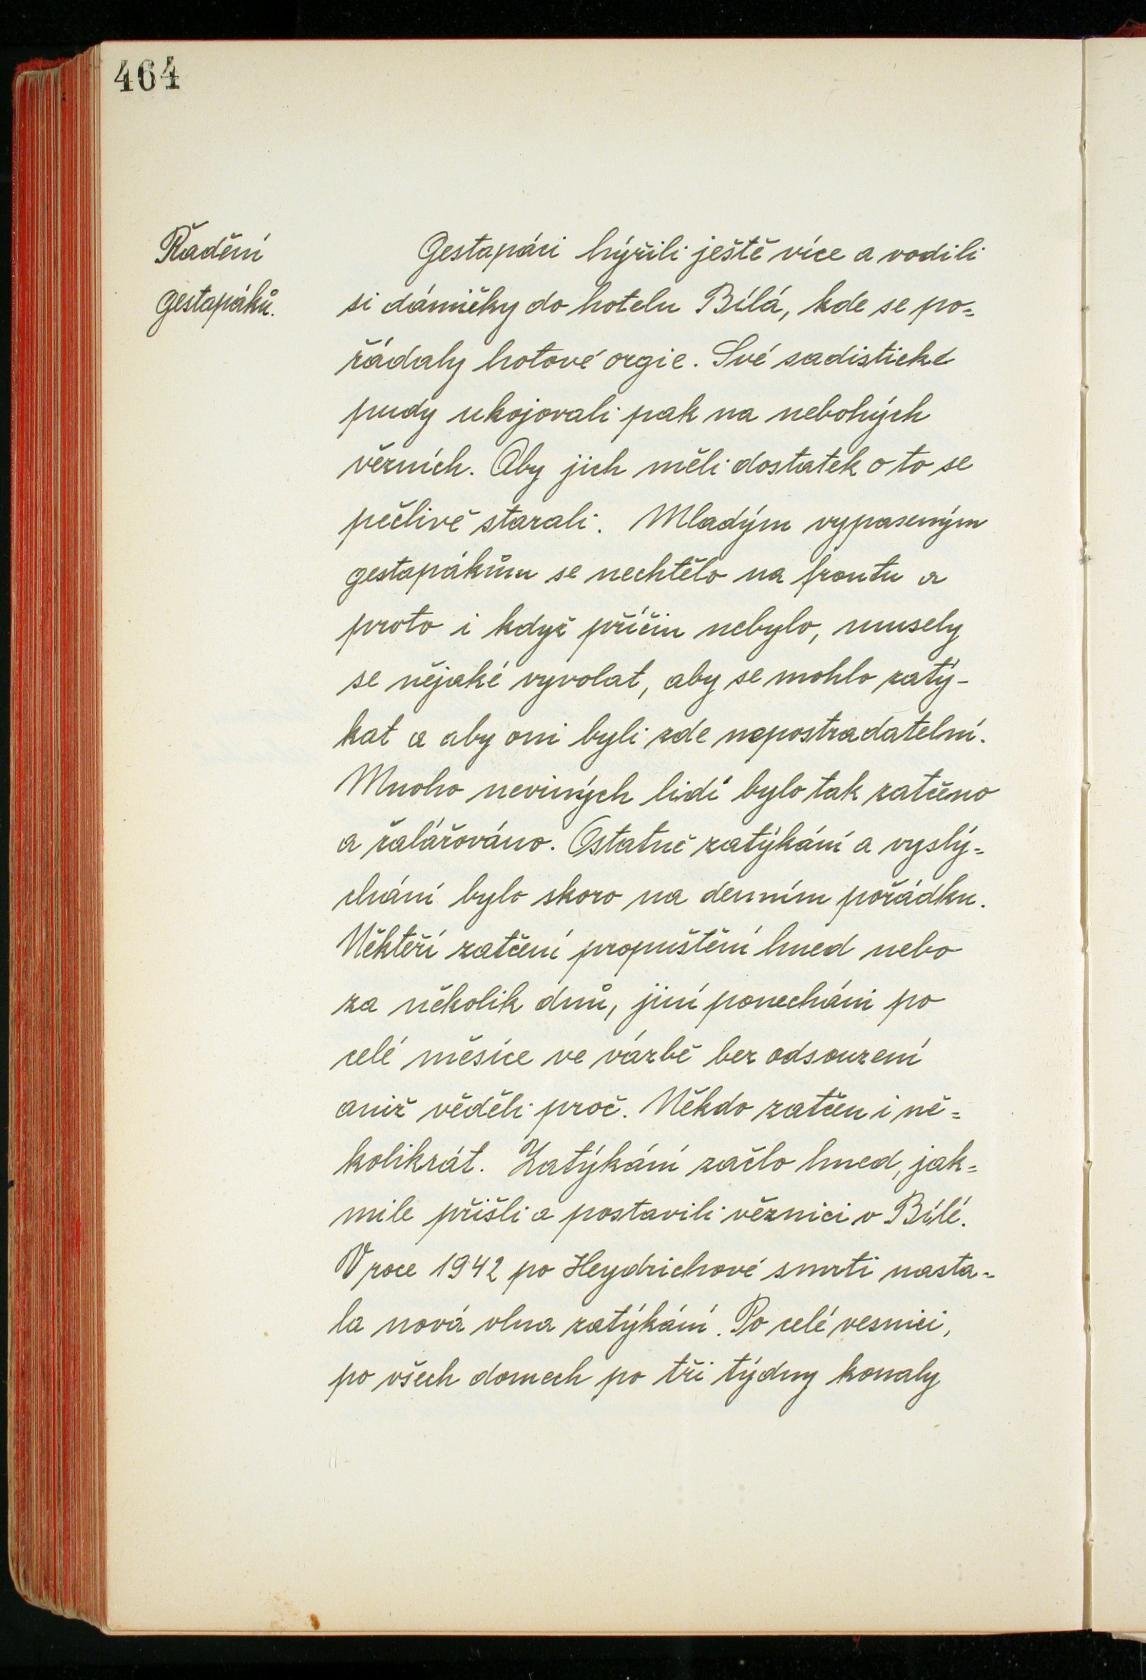 464
Řadění
gestapáků.
Gestapáci hýřili ještě více a vodili
si dámičky do hotelu Bílá, kde se po=
řádaly hotové orgie. Své sadistické
pudy ukojovali pak na nebohých
vězních. Aby jich měli dostatek o to se
pečlivě starali. Mladým vypaseným
gestapákům se nechtělo na frontu a
proto i když příčin nebylo, musely
se nějaké vyvolat, aby se mohlo zatý-
kat a aby oni byli zde nepostradatelní.
Mnoho neviných lidí bylo tak zatčeno
a žalářováno. Ostatně zatýkání a vyslý=
chání bylo skoro na denním pořádku.
Někteří zatčení propuštěni hned nebo
za několik dnů, jiní ponecháni po
celé měsíce ve vazbě bez odsouzení
aniž věděli proč. Někdo zatčen i ně=
kolikrát. Zatýkání začlo hned, jak=
mile přišli a postavili věznici v Bílé.
V roce 1942 po Heydrichově smrti nasta=
la nová vlna zatýkání. Po celé vesnici,
po všech domech po tři týdny konaly